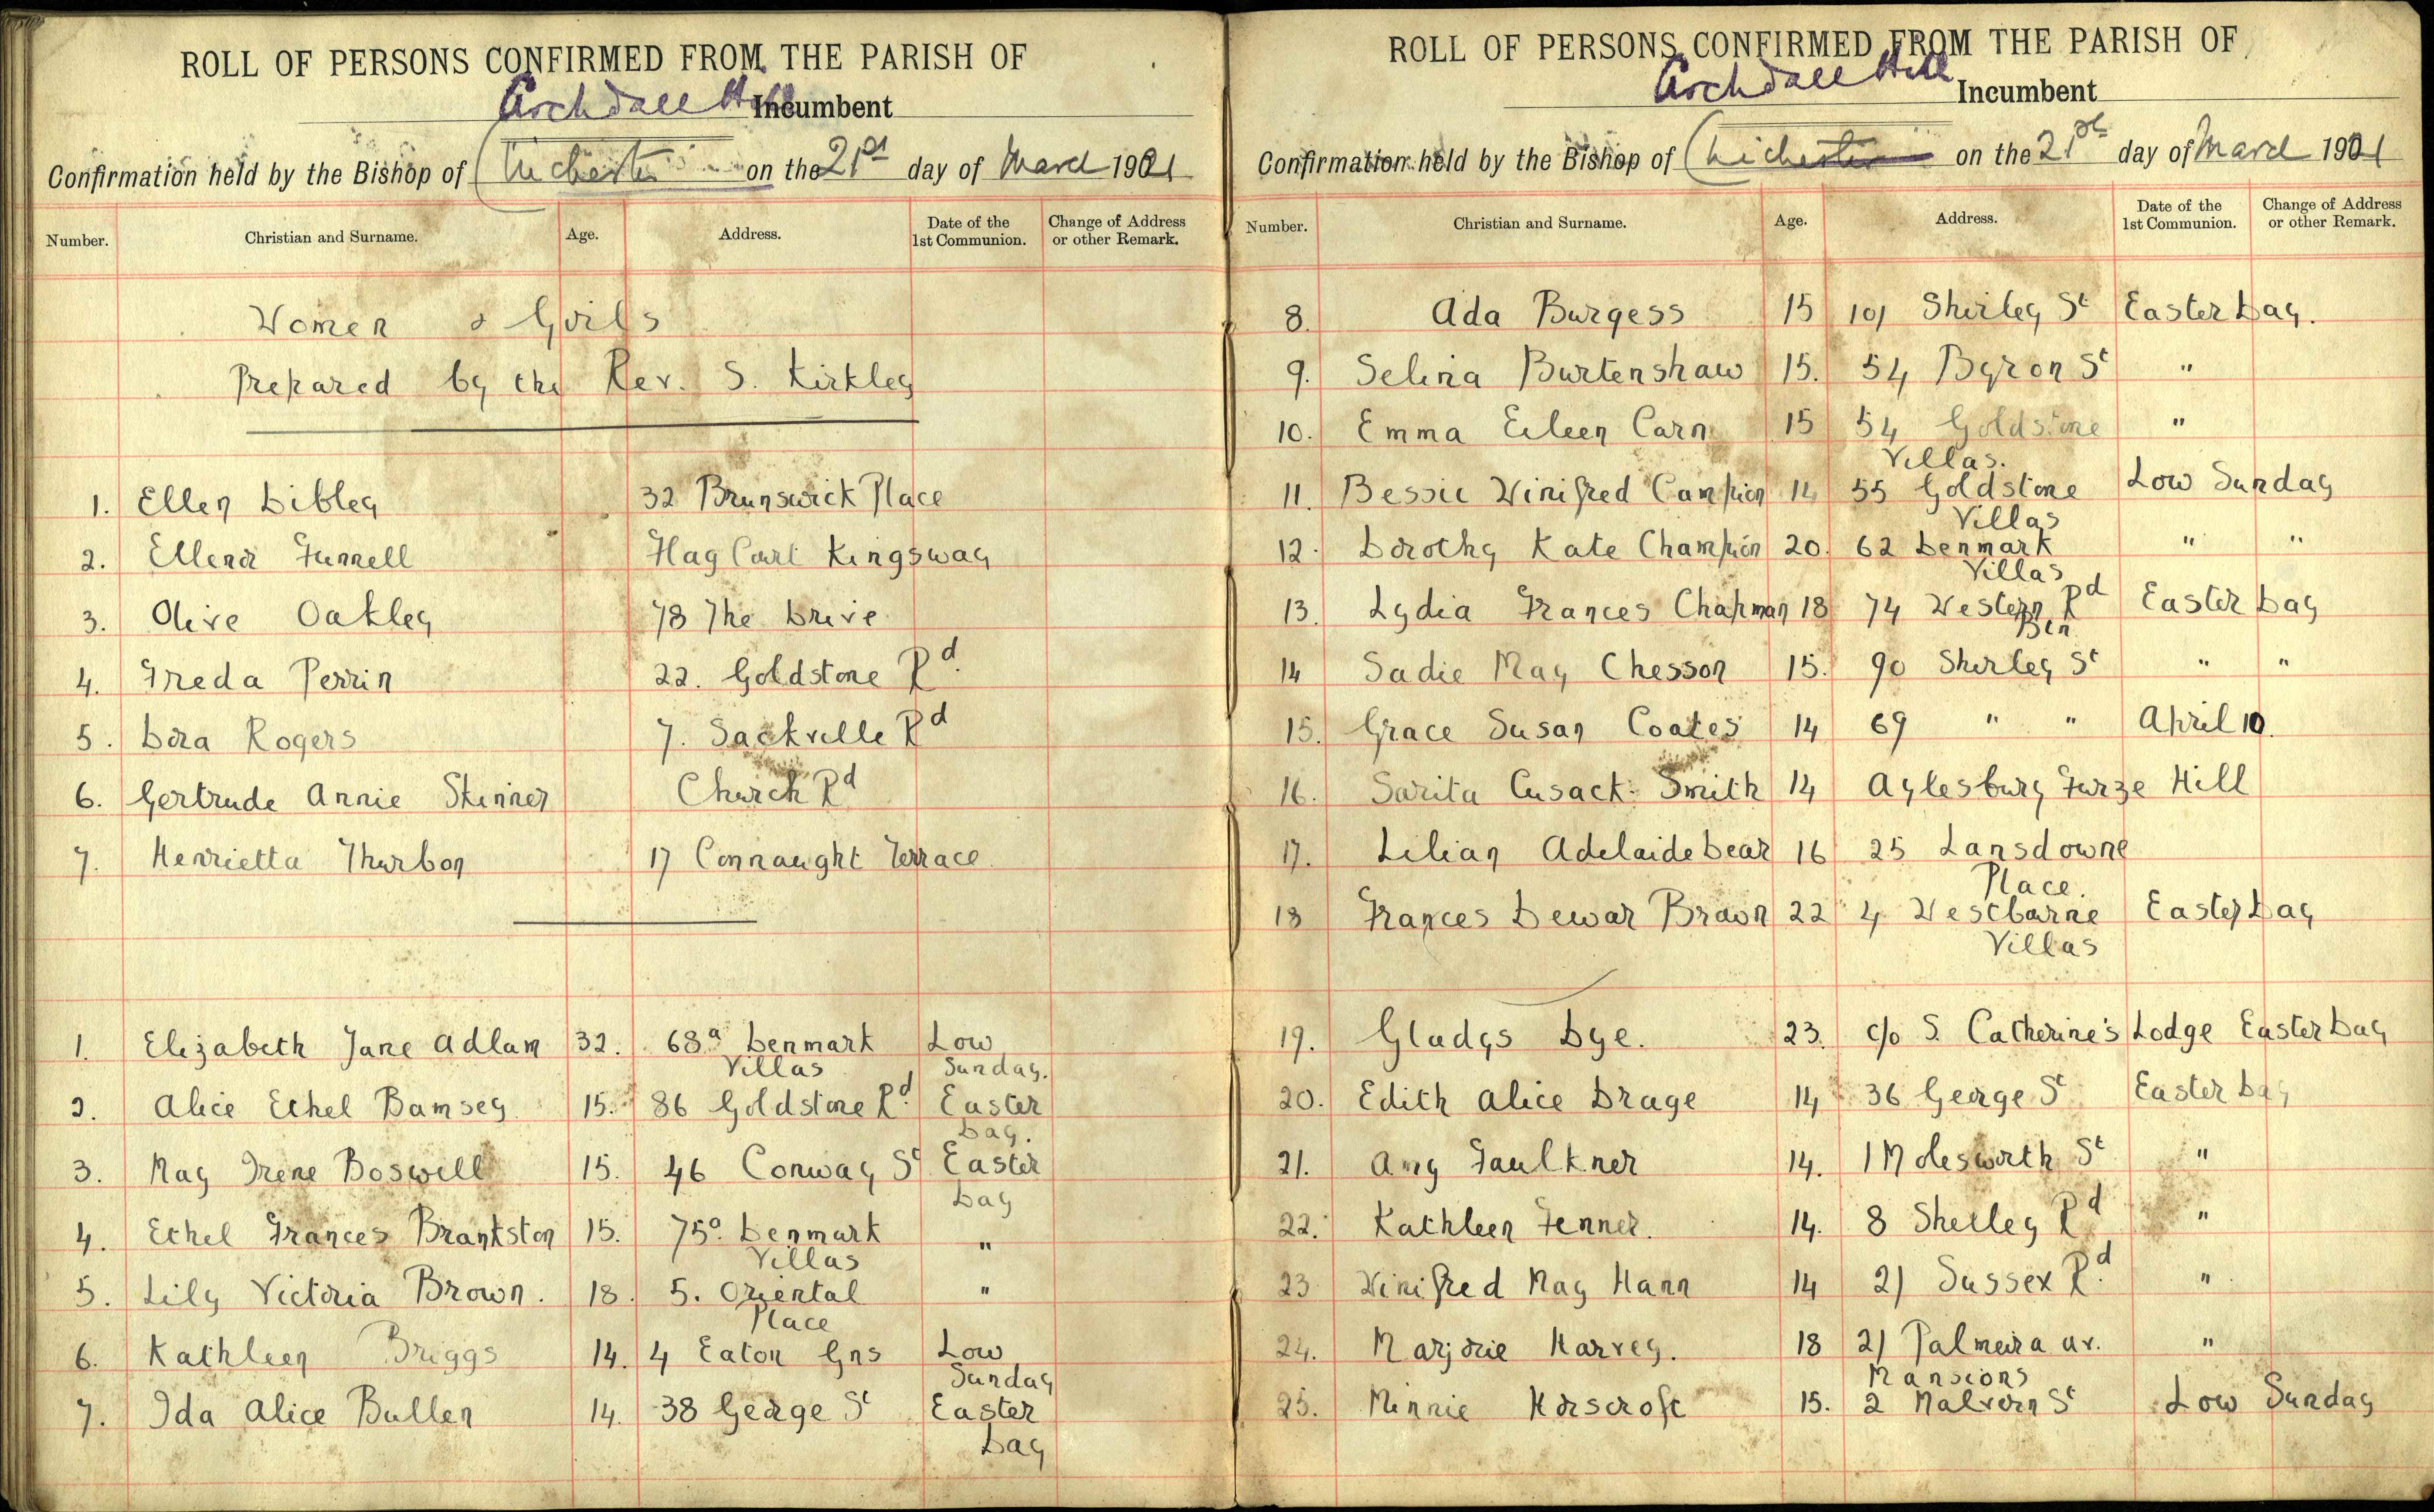 ROLL OF PERSONS CONFIRMED FROM THE PARISH OF
Archdall Hill Incumbent
Confirmation held by the Bishop of Chichester on the 21st day of March 1921
Number. Christian and Surname. Age. Address. Date of the 1st Communion. Change of Address or other Remark.
Women & Girls
Prepared by the Rev. S. Kirkley
1. Ellen Dibley 32 Brunswick Place
2. Funnell Flag Court Kingsway
3. Olive Oakley 78 The Drive
4. Freda Perrin 22. Goldstone Rd.
5. Dora Rogers 7. Sackville Rd
6. Gertrude Annie Skinner Church Rd
7. Henrietta Thurbon 17 Connaught Terrace
1. Elizabeth Jane Adlam 32. 68a Denmark Low
Villas Sunday.
2. Alice Ethel Bamsey 15. 86 Goldstone Rd. Easter
Day.
3. May Irene Boswell 15. 46 Conway St Easter
Day
4. Ethel Frances Brankston 15. 75a Denmark "
Villas
5. Lily Victoria Brown. 18. 5. Oriental "
Place
6. Kathleen Briggs 14. 4 Eaton Gns Low
Sunday
7. Ida Alice Bullen 14. 38 George St Easter
Day
ROLL OF PERSONS CONFIRMED FROM THE PARISH OF
Archdall Hill Incumbent
Confirmation held by the Bishop of Chichester on the 21st day of March 1921
Number. Christian and Surname. Age. Address. Date of the 1st Communion. Change of Address or other Remark.
8. Ada Burgess 15 101 Shirley St Easter Day.
9. Selina Burtenshaw 15. 54 Byron St "
10. Emma Eileen Carn 15 54 Goldstone "
Villas.
11. Bessie Winifred Campion 14 55 Goldstone Low Sunday
Villas
12. Dorothy Kate Champion 20. 62 Denmark " "
Villas
13. Lydia Frances Chapman 18 74 Western Rd Easter Day
Btn
14 Sadie May Chesson 15. 90 Shirley St " "
15. Grace Susan Coates 14 69 " " April 10.
16. Sarita Cusack-Smith 14 Aylesbury Furze Hill
17. Lilian Adelaide Dear 16 25 Lansdowne
Place.
18 Frances Dewar Brown 22 4 Westbourne Easter Day
Villas
19. Gladys Dye. 23. c/o S. Catherine's Lodge Easter Day
20. Edith Alice Drage 14 36 George St Easter Day
21. Amy Faulkner 14. 1 Molesworth St "
22. Kathleen Fenner. 14. 8 Shelley Rd "
23 Winifred May Hann 14 21 Sussex Rd. "
24. Marjorie Harvey. 18 21 Palmeira Av. "
Mansions
25. Minnie Horscroft 15. 2 Malvern St Low Sunday